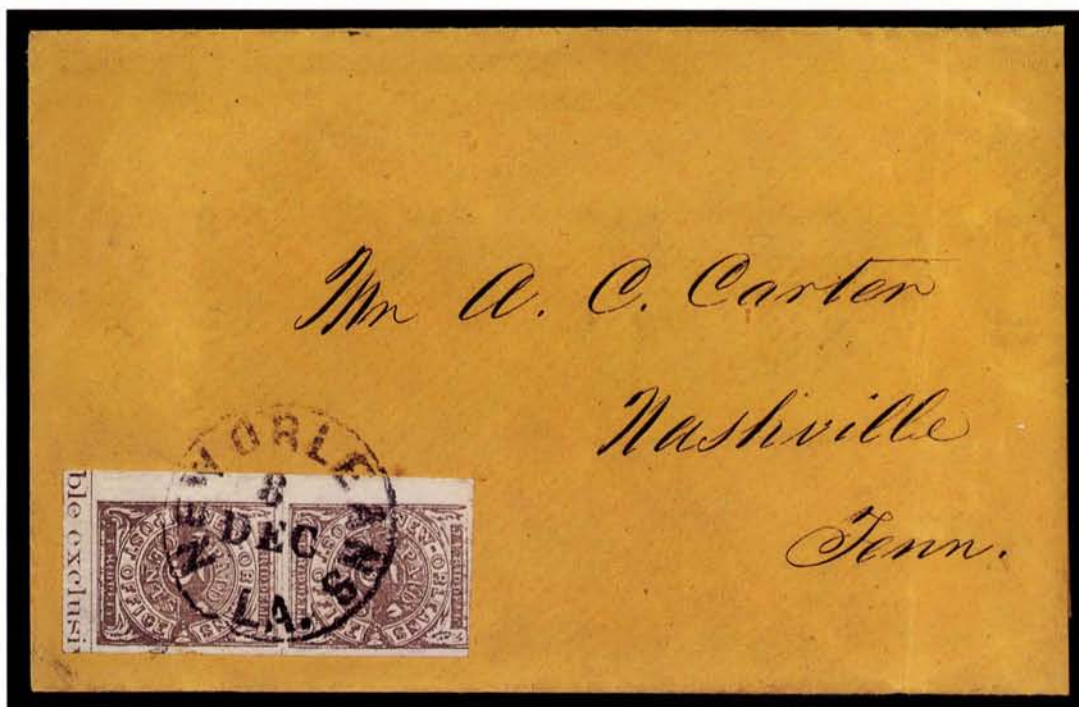 Mr A. C. Carter
Nashville
Tenn.
NEW ORLEANS
8
DEC
LA.
ble exclusi